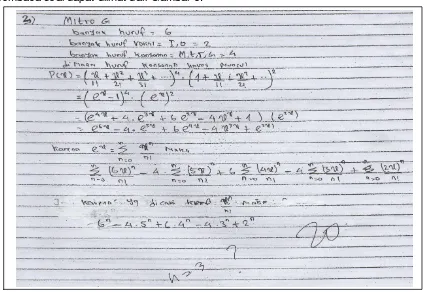 3) Mitro G
banyak huruf = 6
banyak huruf vokal = I, O = 2
banyak huruf konsonan = M, t, r, G = 4
di mana huruf konsonan harus muncul
P(x) = (x/1! + x²/2! + x³/3! + ...)⁴ . (1 + x/1! + x²/2! + ...)²
= (eˣ - 1)⁴ . (eˣ)²
= (e⁴ˣ - 4 . e³ˣ + 6 e²ˣ - 4 eˣ + 1) (e²ˣ)
= e⁶ˣ - 4 . e⁵ˣ + 6 e⁴ˣ - 4 e³ˣ + e²ˣ
karna eˣ = Σ n=0 xⁿ/n! maka
Σ n=0 (6x)ⁿ/n! - 4 . Σ n=0 (5x)ⁿ/n! + 6 Σ n=0 (4x)ⁿ/n! - 4 Σ n=0 (3x)ⁿ/n! + Σ n=0 (2x)ⁿ/n!
karna yg di cari xⁿ/n! maka :
6ⁿ - 4 . 5ⁿ + 6 . 4ⁿ - 4 . 3ⁿ + 2ⁿ
n = 3 ?
20